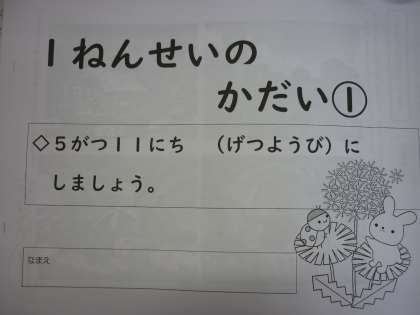 1ねんせいの
かだい①
◇5がつ11にち (げつようび)に
しましょう。
なまえ